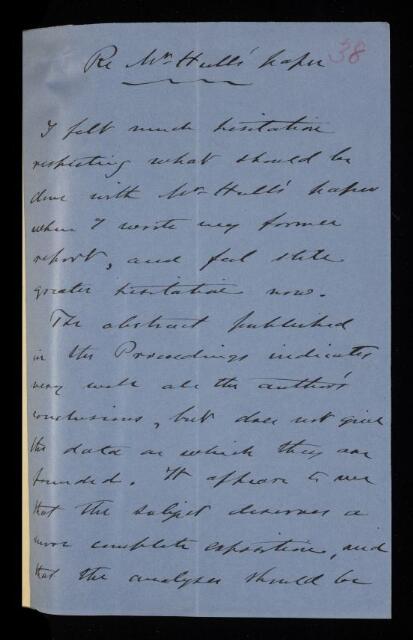 Re Mr Hull's paper 38
I felt much hesitation
respecting what should be
done with Mr Hull's paper
when I wrote my former
report, and feel still
greater hesitation now.
The abstract published
in the Proceedings indicates
very well all the author's
conclusions, but does not give
the data on which they are
founded. It appears to me
that the subject deserves a
more complete exposition, and
that the analyses should be